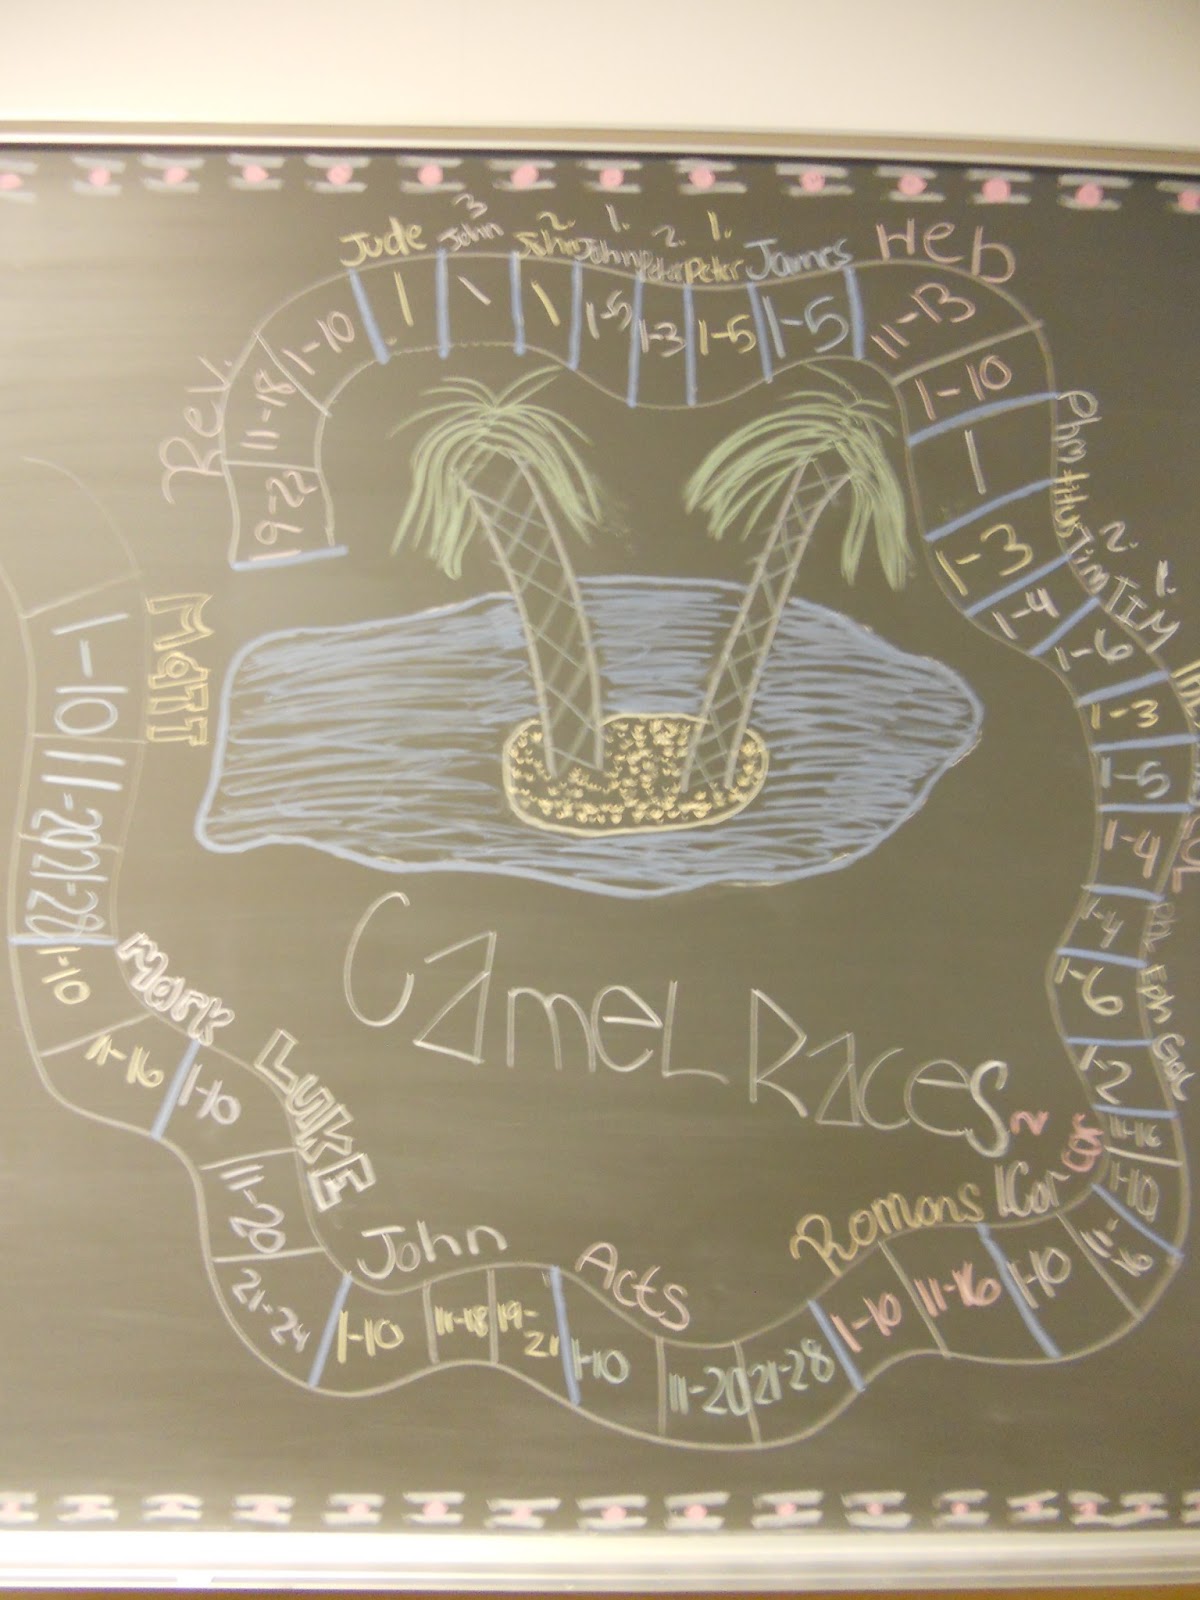 MaTT
1-10
11-20
21-28
Mark
1-10
11-16
LUKE
1-10
11-20
21-24
John
1-10
11-18
19-21
Acts
1-10
11-20
21-28
Romans
1-10
11-16
1Cor
1-10
11-16
2 Cor
1-10
11-16
Gal
1-2
Eph
1-6
1-4
1-4
1-5
1-3
1. TIM
1-6
2. Tim
1-4
titus
1-3
Phm
1
Heb
1-10
11-13
James
1-5
1. Peter
1-5
2. Peter
1-3
1. John
1-5
2. John
1
3 John
1
Jude
1
Rev.
1-10
11-18
19-22
CameL Races